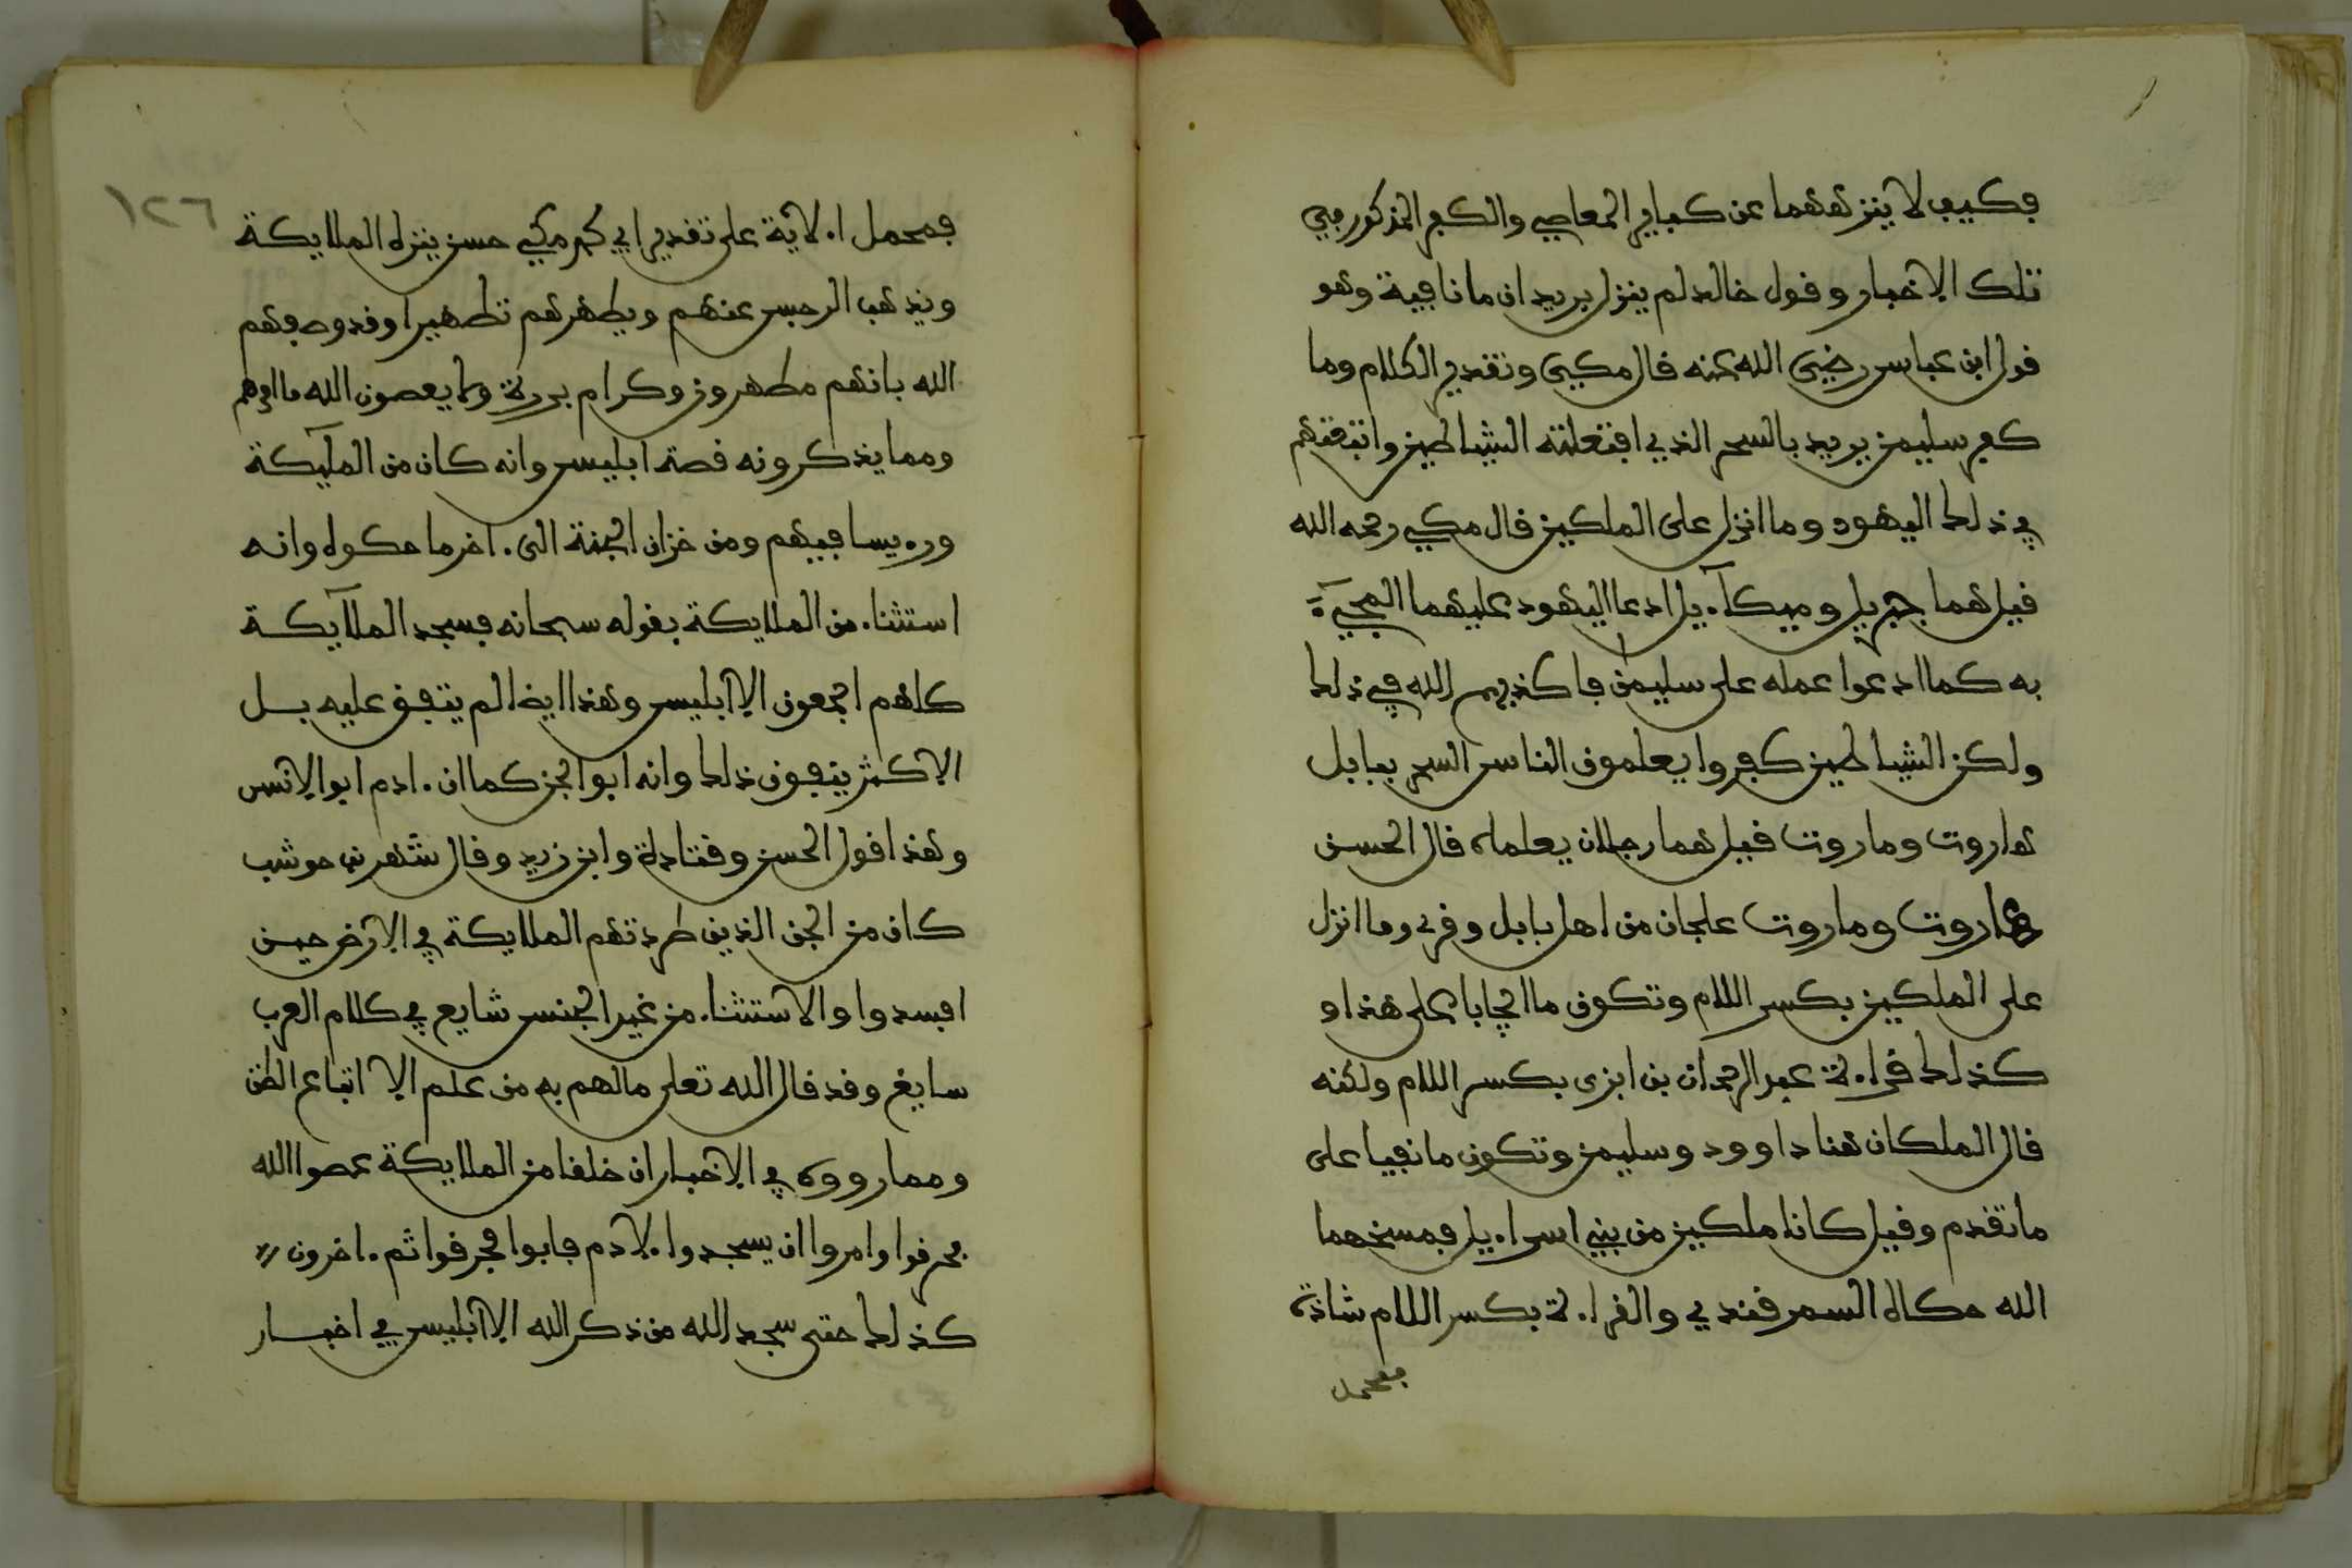 فكيف لا ينزههما عن كباير المعاصي والكفر المذكور في
تلك الاخبار وقول خالد لم ينزل يريد ان ما نافية وهو
قول ابن عباس رضي الله عنه قال مكي وتقدير الكلام وما
كفر سليمن يريد بالسحر الذي افتعلته الشياطين واتبعتهم
في ذلك اليهود وما انزل على الملكين قال مكي رحمه الله
قيل هما جبريل وميكآ.يل ادعا اليهود عليهما المجيَٓة
به كما ادعوا عمله على سليمن فاكذبهم الله في ذلك
ولكن الشياطين كفروا يعلمون الناس السحر ببابل
هاروت وماروت قيل هما رجلان يعلماه قال الحسن
هاروت وماروت علجان من اهل بابل وقرى وما انزل
على الملكين بكسر اللام وتكون ما ايجابا على هذا و
كذلك قرا.ة عبد الرحمان بن ابزى بكسر اللام ولكنه
قال الملكان هنا داوود وسليمن وتكون ما نفيا على
ما تقدم وقيل كانا ملكين من بني اسرا.يل فمسخهما
الله حكاه السمرقندي والقرا.ة بكسر اللام شاذة
فمحمل
١٢٦
فمحمل ا.لاية على تقدير ابي محمد مكي حسن ينزه الملايكة
ويذهب الرجس عنهم ويطهرهم تطهيرا وقد وصفهم
الله بانهم مطهرون وكرام بررة ولا يعصون الله ما امرهم
ومما يذكرونه قصة ابليس وانه كان من الملٓيكة
وره يسا فيهم ومن خزان الجنة الى .اخر ما حكوه وانه
استثنا. من الملايكة بقوله سبحانه فسجد الملآيكة
كلهم اجمعون الا ابليس وهذا ايضا لم يتفق عليه بل
الاكثر ينفون ذلك وانه ابو الجن كما ان .ادم ابو الانس
وهذا قول الحسن وقتادة وابن زيد وقال شهر بن حوشب
كان من الجن الذين طردتهم الملايكة في الارض حين
افسدوا والاستثنا. من غير الجنس شايع في كلام العرب
سايغ وقد قال الله تعلى مالهم به من علم الا اتباع الظن
ومما رووه في الاخبار ان خلقا من الملايكة عصوا الله
فحرقوا وامروا ان يسجدوا .لادم فابوا فحرقوا ثم .اخرون
كذلك حتى سجد لله من ذكر الله الا ابليس في اخبار